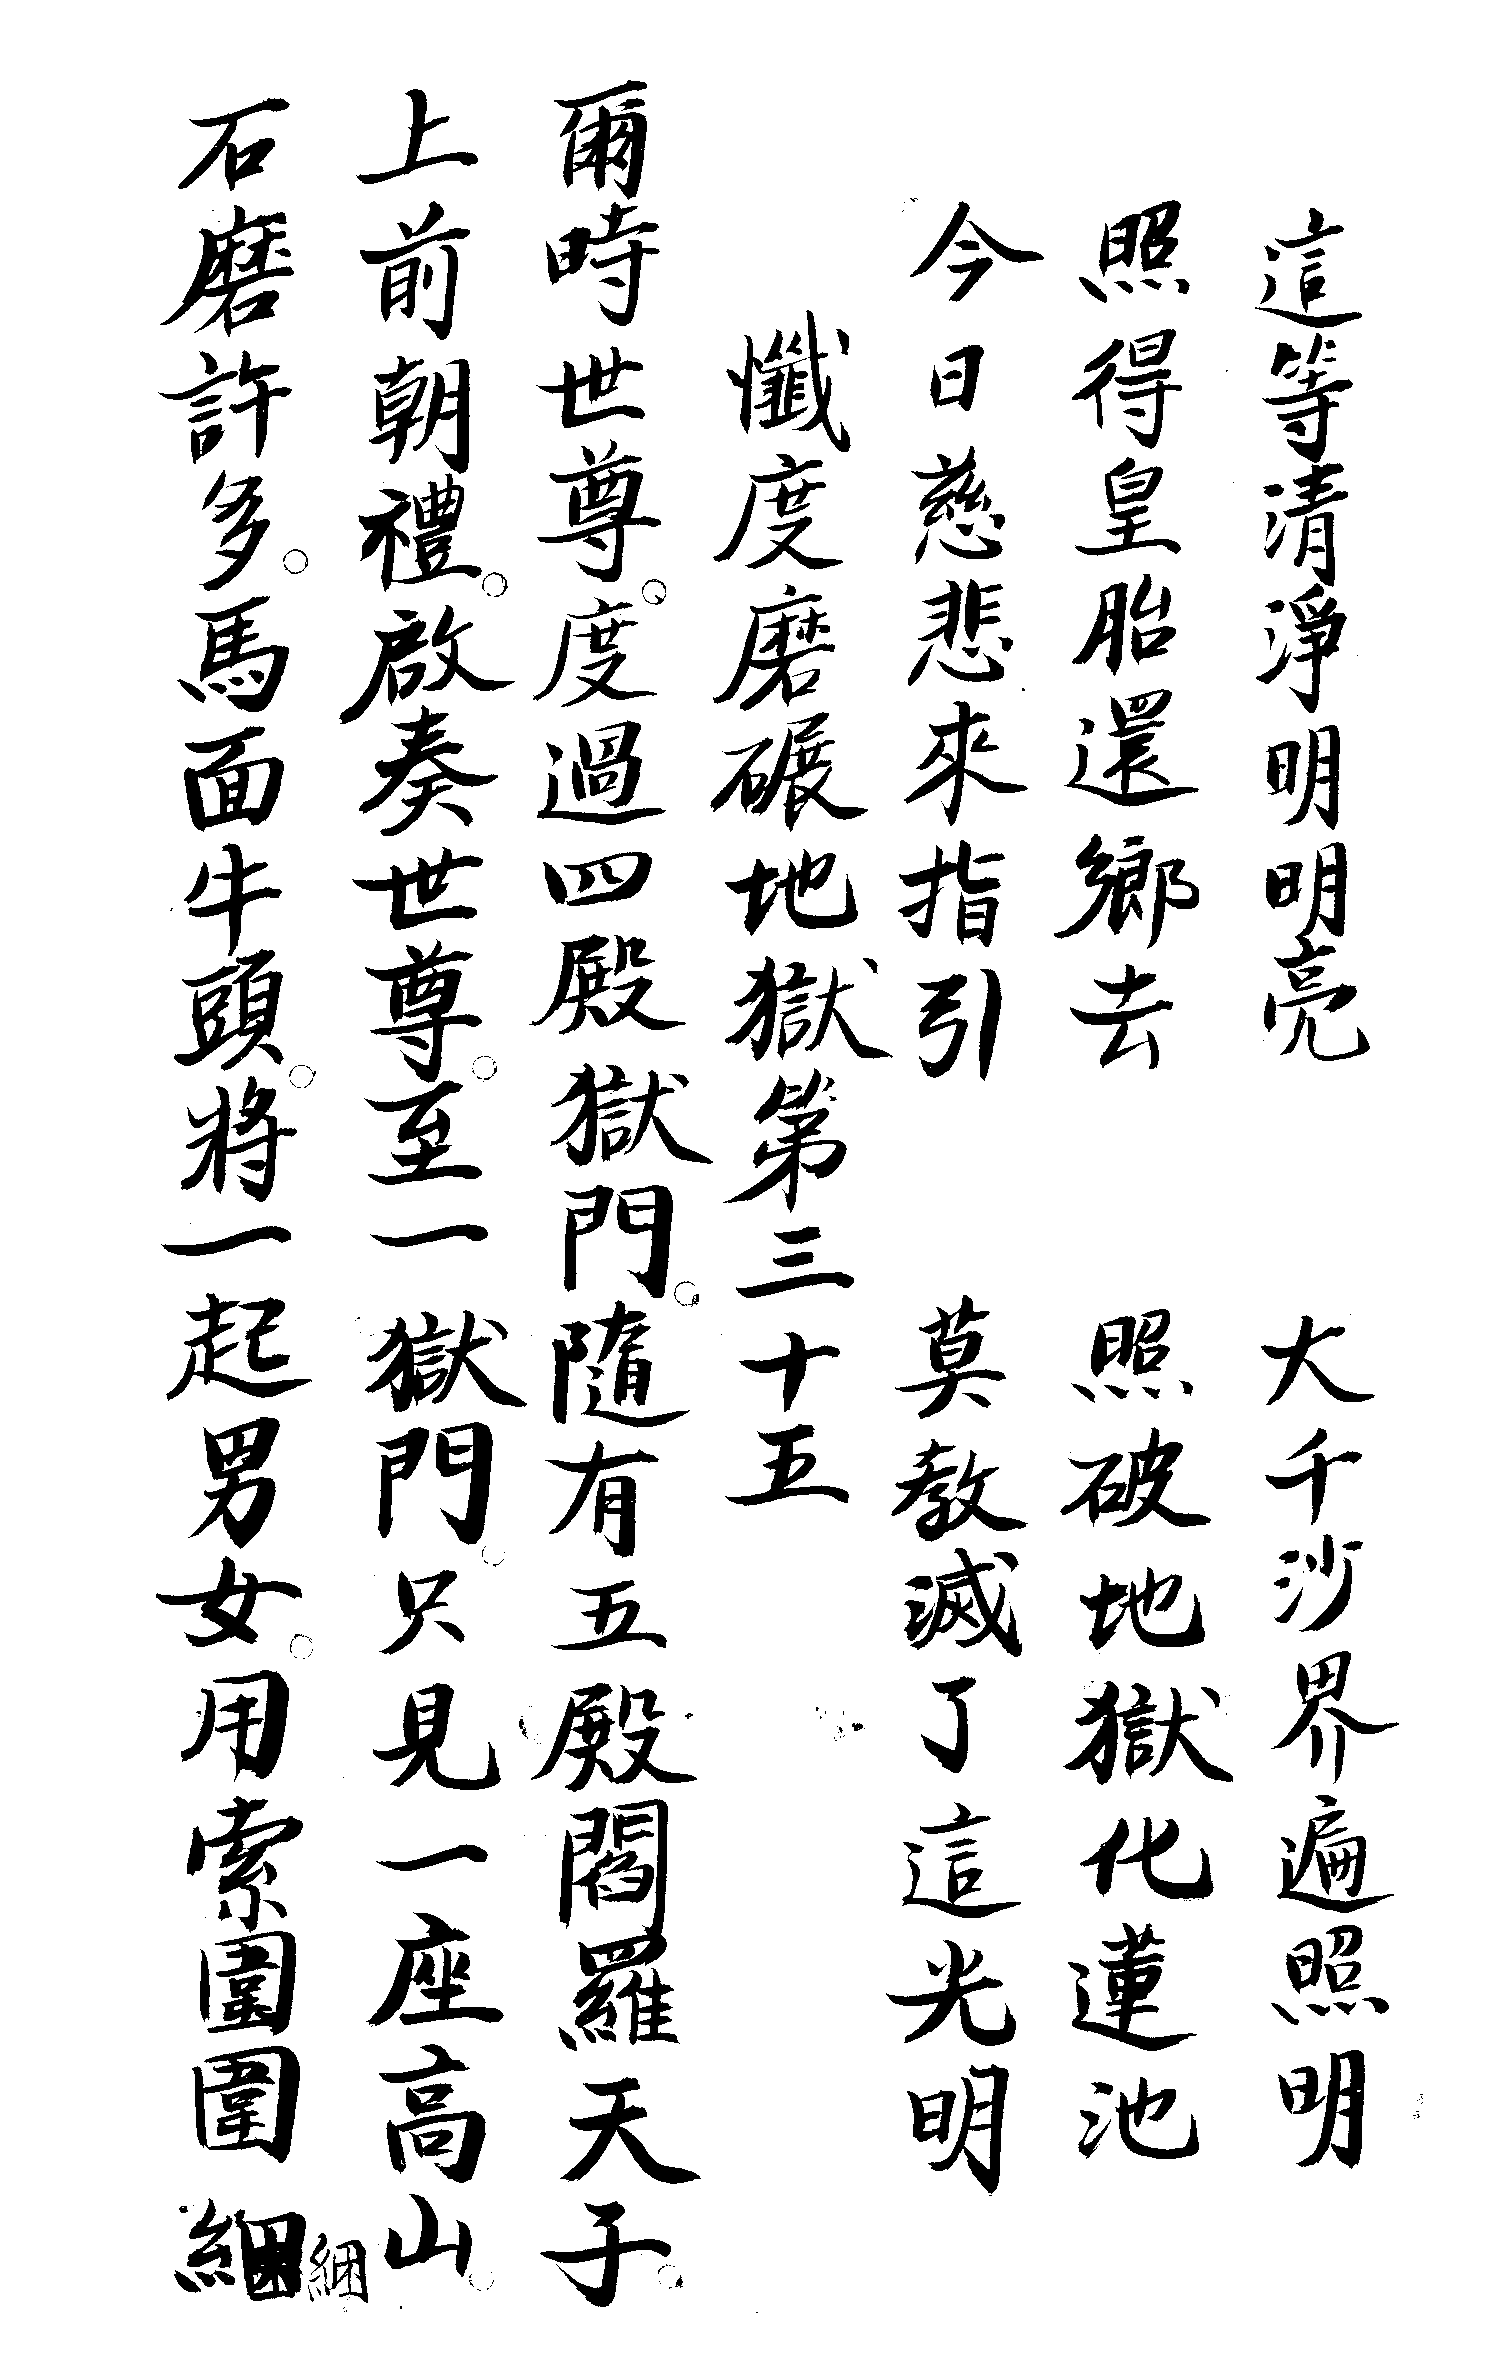 這等清淨明明亮　大千沙界遍照明
照得皇胎還鄉去　照破地獄化蓮池
今日慈悲來指引　莫教滅了這光明
懺度磨碾地獄第三十五
爾時世尊。度過四殿獄門。隨有五殿閻羅天子。
上前朝禮。啟奏世尊。至一獄門。只見一座高山。
石磨許多。馬面牛頭。將一起男女。用索圍圍綑
綑